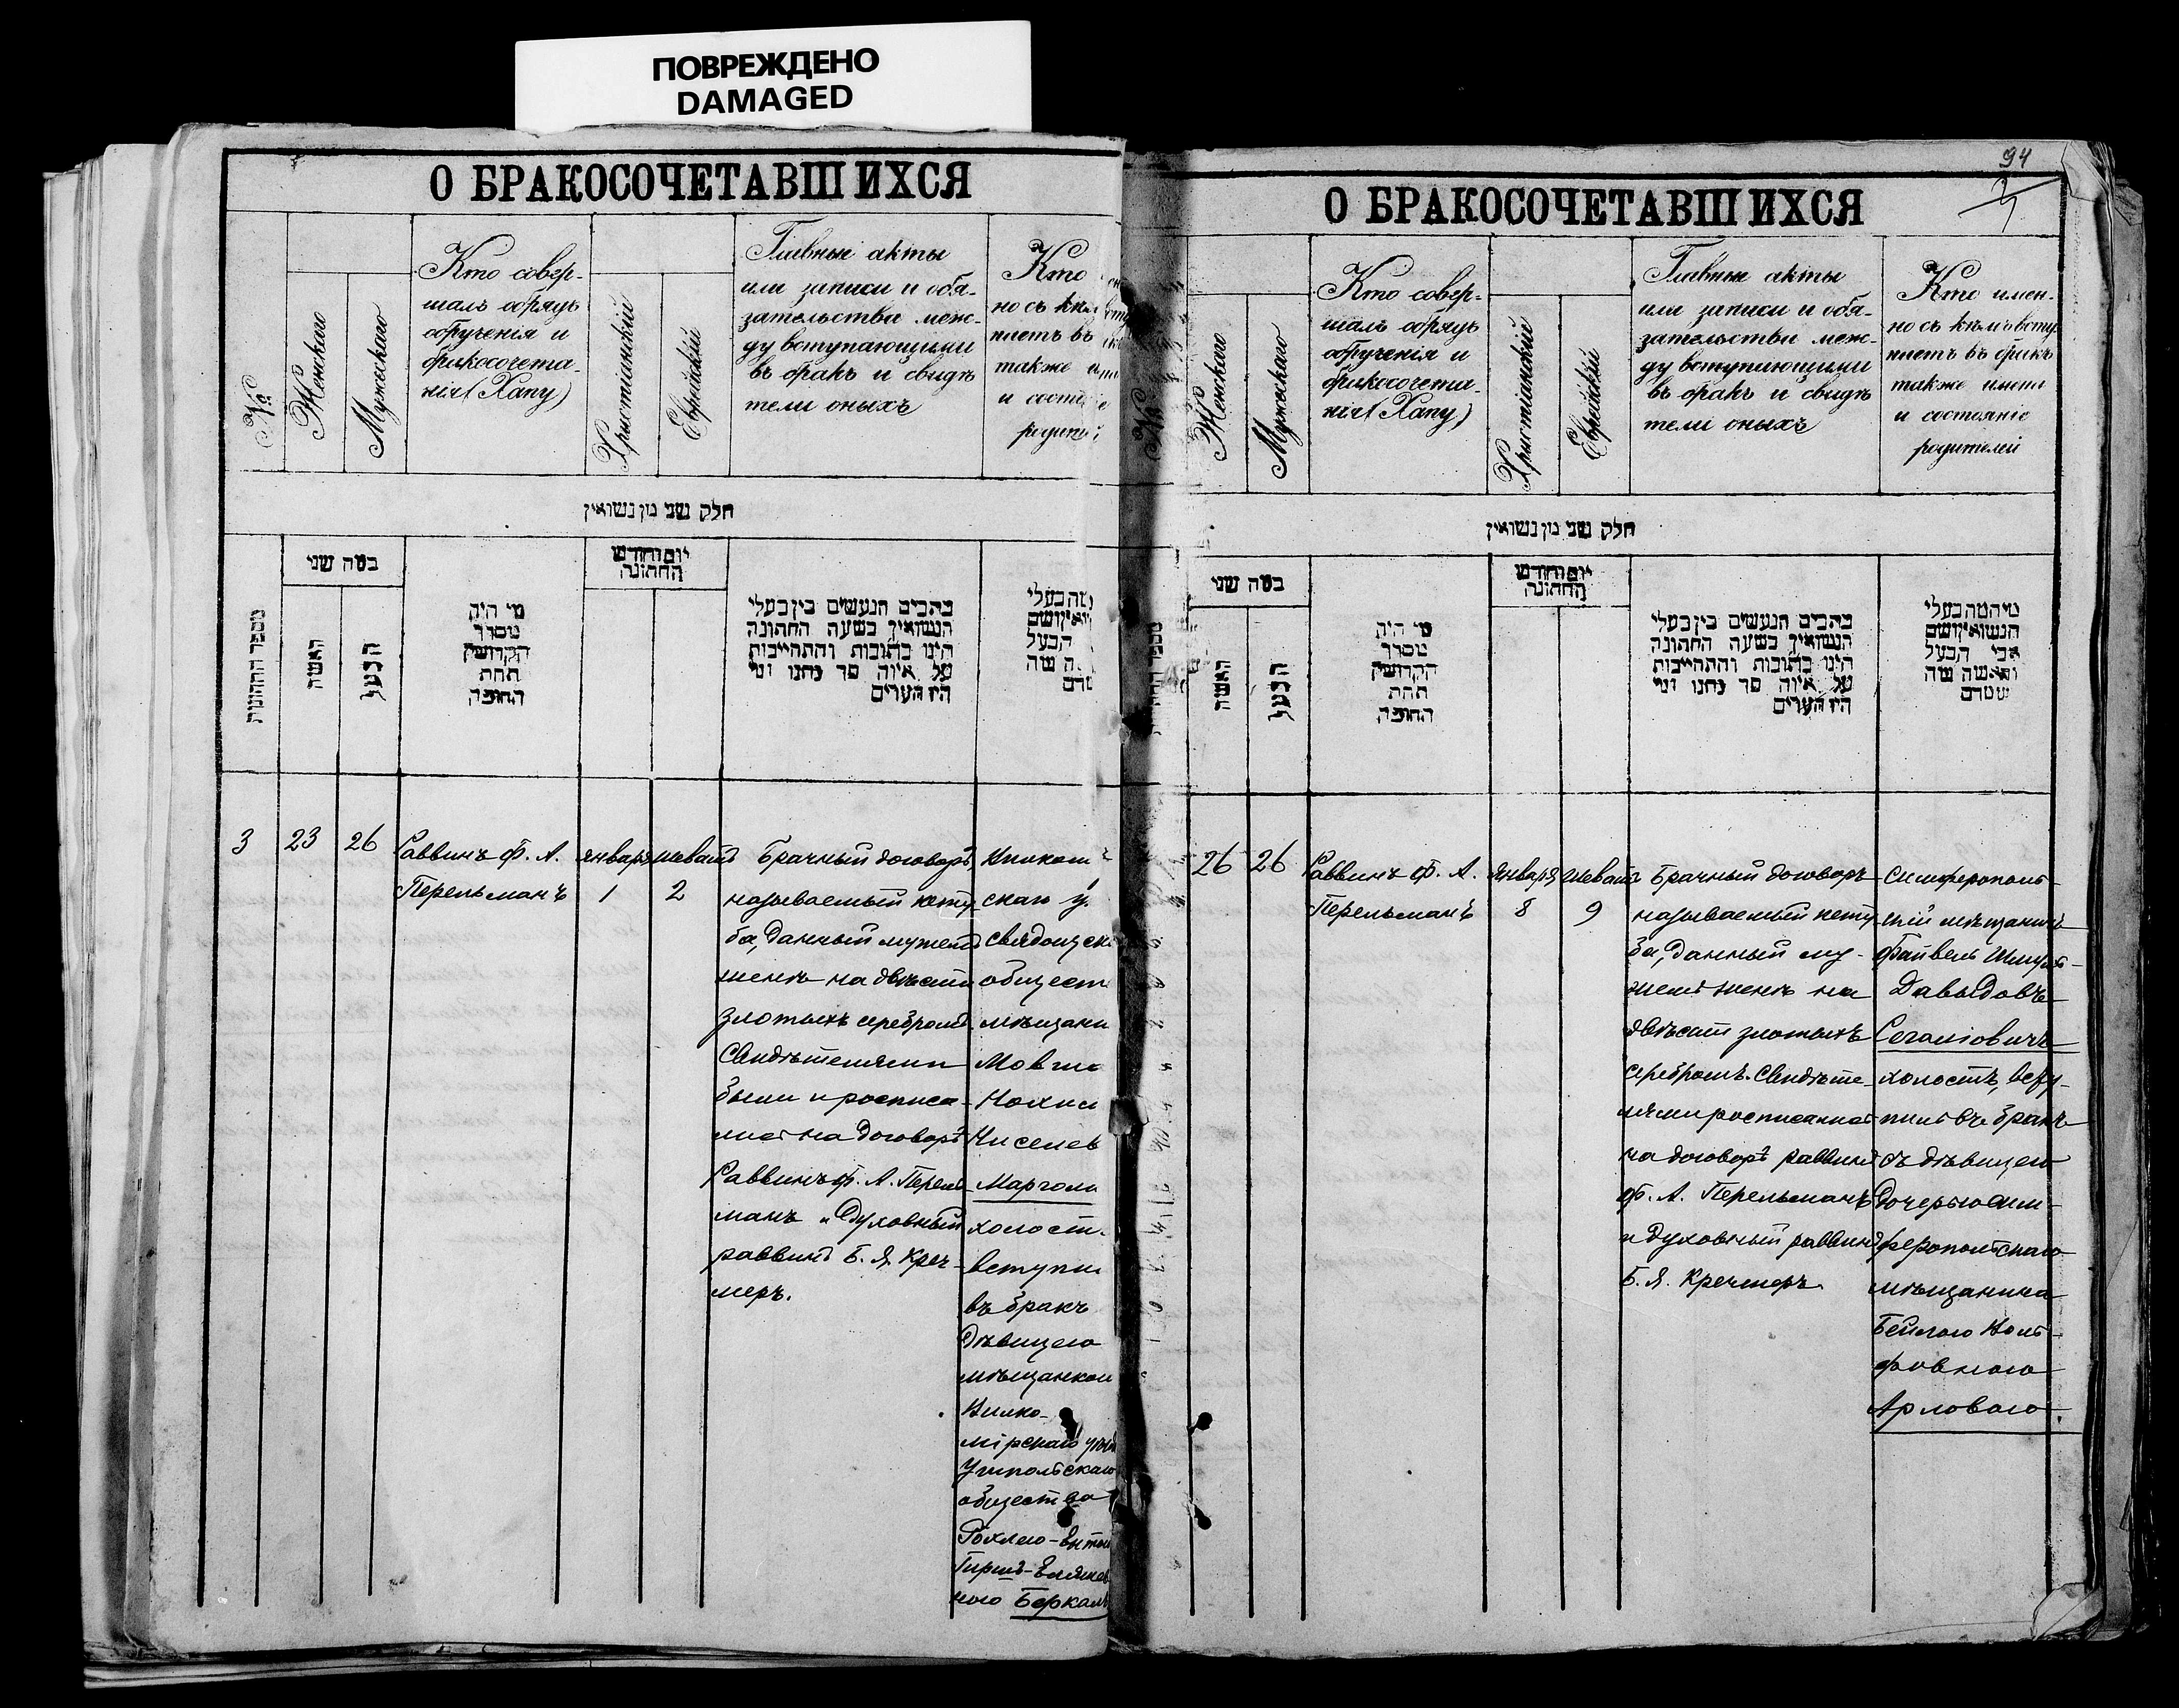 ПОВРЕЖДЕНО
DAMAGED
О БРАКОСОЧЕТАВШИХСЯ
№
Женскаго
Мужескаго
Кто совер-
шалъ обрядъ
обрученія и
бракосочета-
нія (Хапу)
Христіанскій
Еврейскій
Главные акты
или записи и обя-
зательства меж-
ду вступающими
въ бракъ и свидѣ
тели оныхъ
Кто
но съ
паетъ въ
также
и
חלק שני מן נשואין
מספר החתונות
במה שני
האשה
הבעל
מי היה
מסדר
הקדושין
תחת
החופה
יום וחודש
החתונה
כתבים הנעשים בין בעלי
הנשואין בשעה החתונה
היינו כתובות והתחייבות
על איזה סך נתנו ומי
היו העדים
הבעל
3
23
26
Раввинъ Ф. А.
Перельманъ
Января
1
Шевата
2
Брачный договоръ,
называемый кету
ба, данный мужемъ
женѣ на двѣсти
злотыхъ серебромъ
Свидѣтелями
были и росписа-
лись на договорѣ
Раввинъ Ф. А. Перель
манъ и Духовный
раввинъ Б. Я. Креч-
меръ.
скаго у.
общест
мѣщани
Мовша
Киселев
Маргол
холост.
вступи
въ бракъ
дѣвицею
мѣщанкою
Вилко-
мірскаго уѣзд
Ушпольскаго
общества
Гирш-
ною Беркал
94
О БРАКОСОЧЕТАВШИХСЯ
Женскаго
Мужескаго
Кто совер-
шалъ обрядъ
обрученія и
бракосочета-
нія (Хапу)
Христіанскій
Еврейскій
Главные акты
или записи и обя-
зательства меж-
ду вступающими
въ бракъ и свидѣ
тели оныхъ
Кто имен-
но съ кѣмъ всту
паетъ въ бракъ
также имена
и состояніе
родителей
חלק שני מן נשואין
במה שני
האשה
הבעל
מי היה
מסדר
הקדושין
תחת
החופה
יום וחודש
החתונה
כתבים הנעשים בין בעלי
הנשואין בשעה החתונה
היינו כתובות והתחייבות
על איזה סך נתנו ומי
היו העדים
מי המה בעלי
הנשואין ושם
אבי הבעל
והאשה מה
שמם
26
26
Раввинъ Ф. А.
Перельманъ
Января
8
Шевата
9
Брачный договоръ
называемый кету
ба, данный му-
жемъ женѣ на
двѣсти злотыхъ
серебромъ. Свидѣте-
лями росписались
на договорѣ раввинъ
Ф. А. Перельманъ
и духовный раввинъ
Б. Я. Кречмеръ
Симферополь-
скій мѣщанинъ
Файвель Шмуль-
Давыдовъ
Сегаловичъ
холостъ, всту-
пилъ въ бракъ
съ дѣвицею
дочерью Сим-
феропольскаго
мѣщанина
Бейлою Воль-
фовною
Арловою.